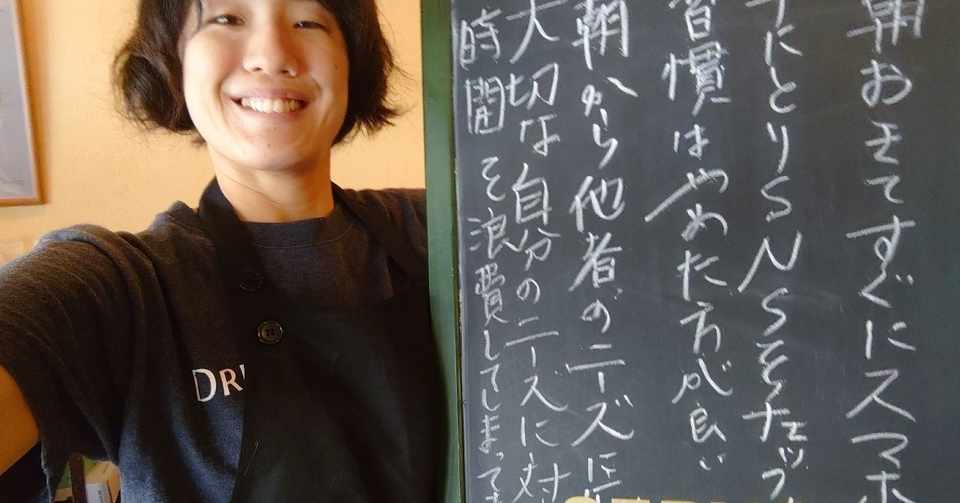 朝おきてすぐにスマホ
手にとりSNSをチェック
習慣はやめた方が良い
朝から他者のニーズに
大切な自分のニーズに対
時間を浪費してしまって
DR